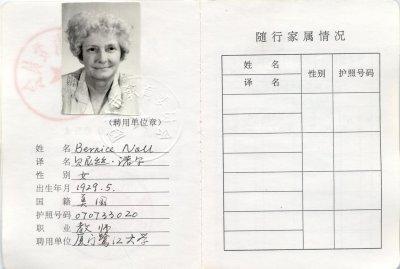 (聘用单位章)
姓 名 Bernice Noll
译 名 贝尼丝·诺尔
性 别 女
出生年月 1929.5.
国 籍 美国
护照号码 070733020
职 业 教师
聘用单位 厦门鹭江大学
随行家属情况
姓 名
译 名
性别
护照号码